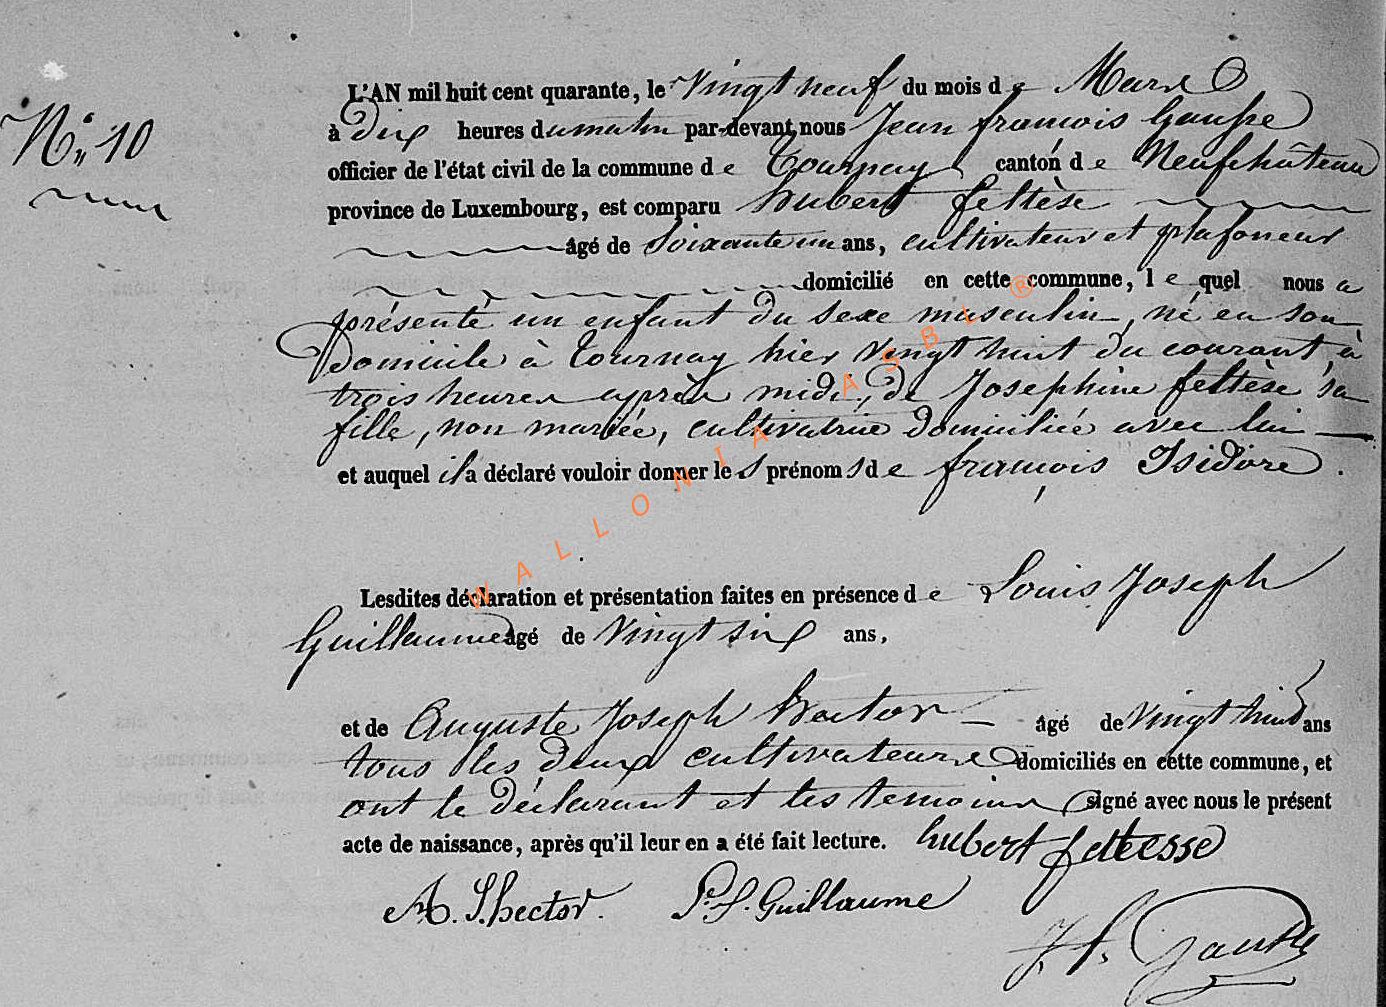 N.° 10
L'AN mil huit cent quarante, le Vingt neuf du mois de Mars
à dix heures du matin par-devant nous Jean françois Gausse
officier de l'état civil de la commune de Tournay canton de Neufchâteau
province de Luxembourg, est comparu hubert feltèse
âgé de Soixante un ans, cultivateur et plafoneur
domicilié en cette commune, lequel nous a
présenté un enfant du sexe masculin, né en son
domicile à Tournay hier vingt huit du courant à
trois heures après midi, de Josephine feltèse sa
fille, non mariée, cultivatrice domiciliée avec lui
et auquel il a déclaré vouloir donner les prénoms de françois Isidore.
Lesdites déclaration et présentation faites en présence de Louis Joseph
Guillaume âgé de Vingt six ans,
et de Auguste Joseph hector âgé de Vingt huit ans
tous les deux cultivateurs domiciliés en cette commune, et
ont le déclarant et les temoins signé avec nous le présent
acte de naissance, après qu'il leur en a été fait lecture. hubert feltesse
A. J. hector. L. J. Guillaume
J. f. Gausse
WALLONIA ASBL ®